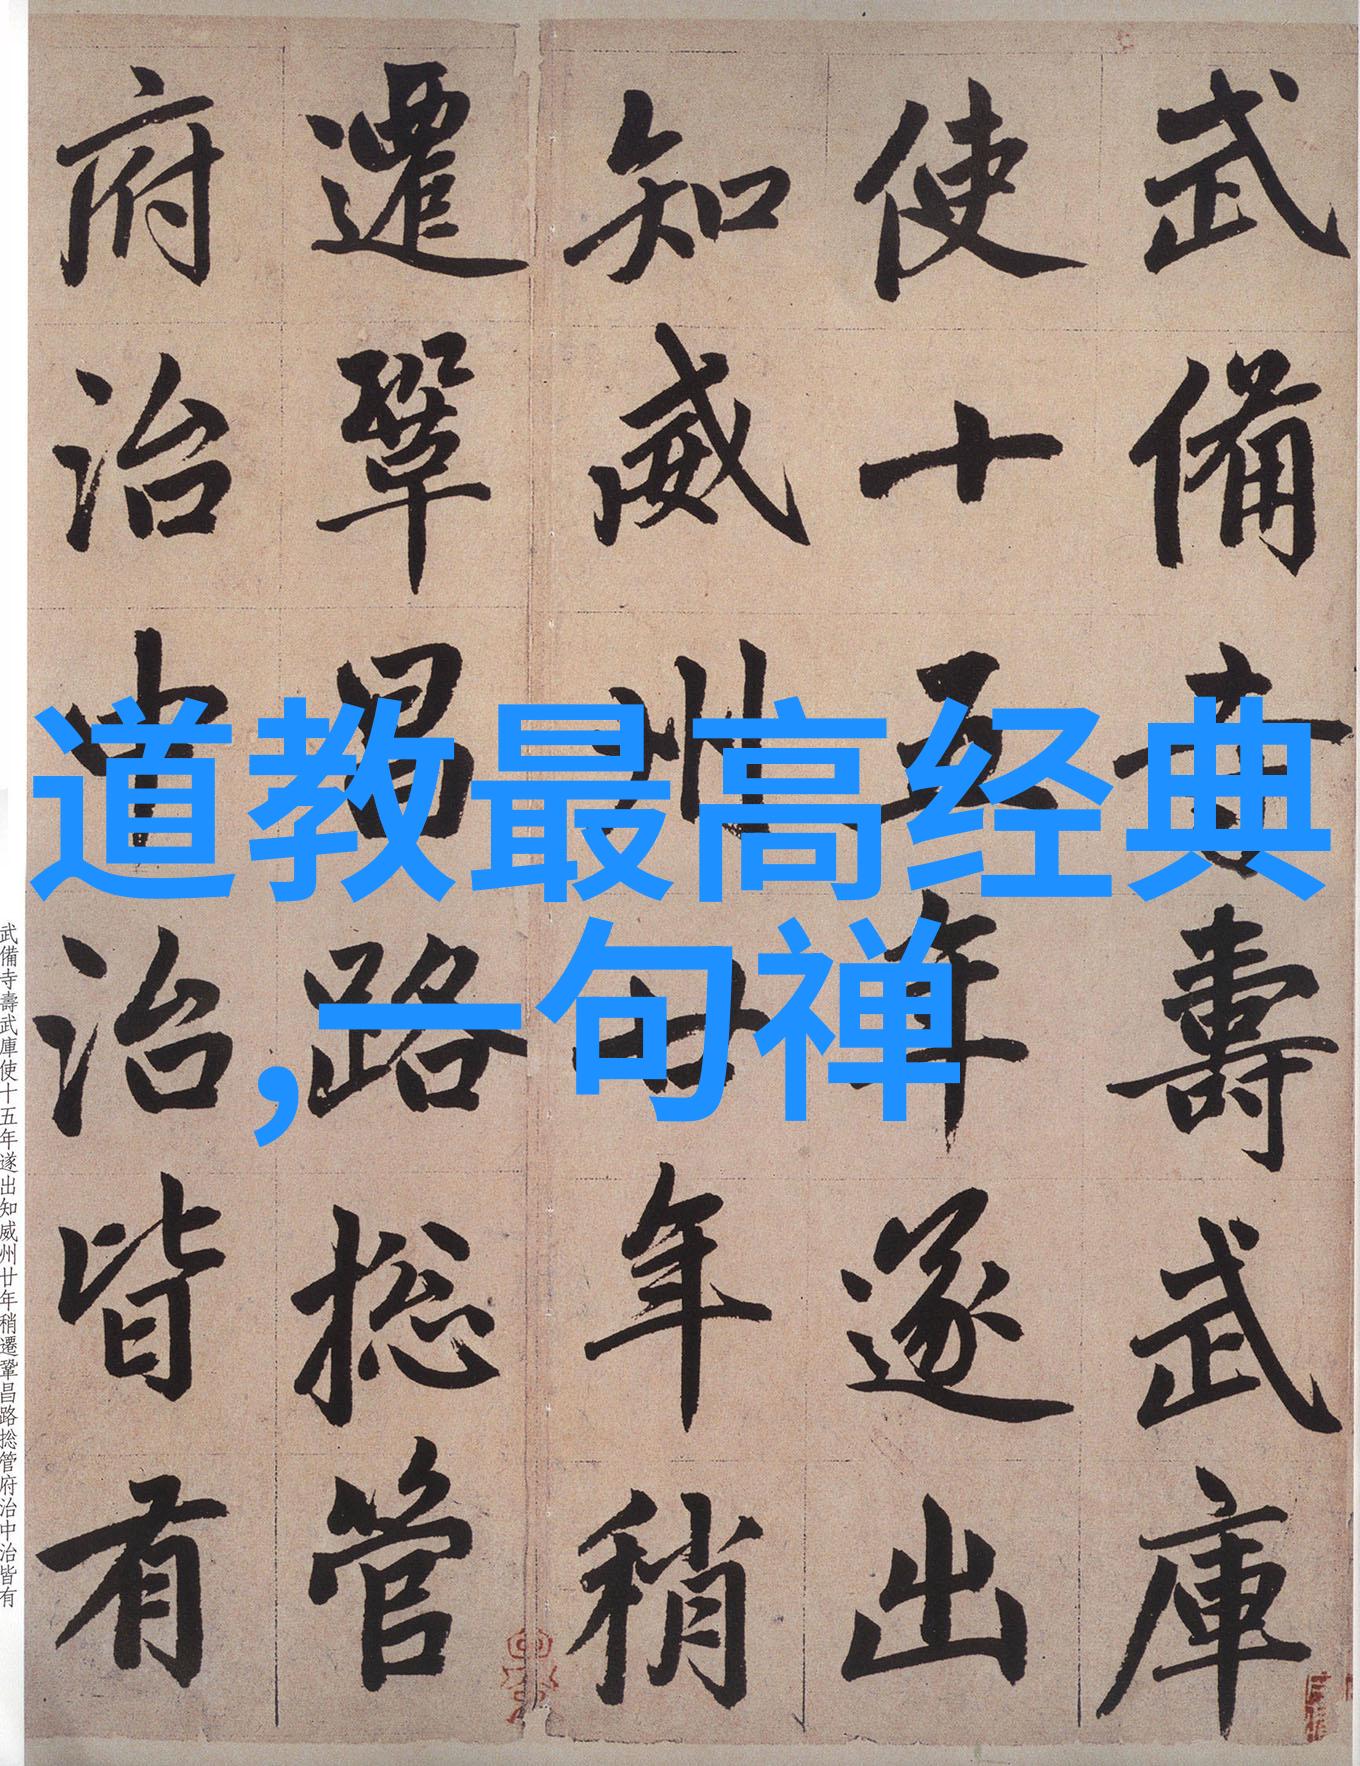 武備寺壽武庫
使十五年遂出
知威州廿年稍
遷鞏昌路捴管
府治中治皆有
道教最高经典
,一句禅
武備寺壽武庫使十五年遂出知威州廿年稍遷鞏昌路捴管府治中治皆有